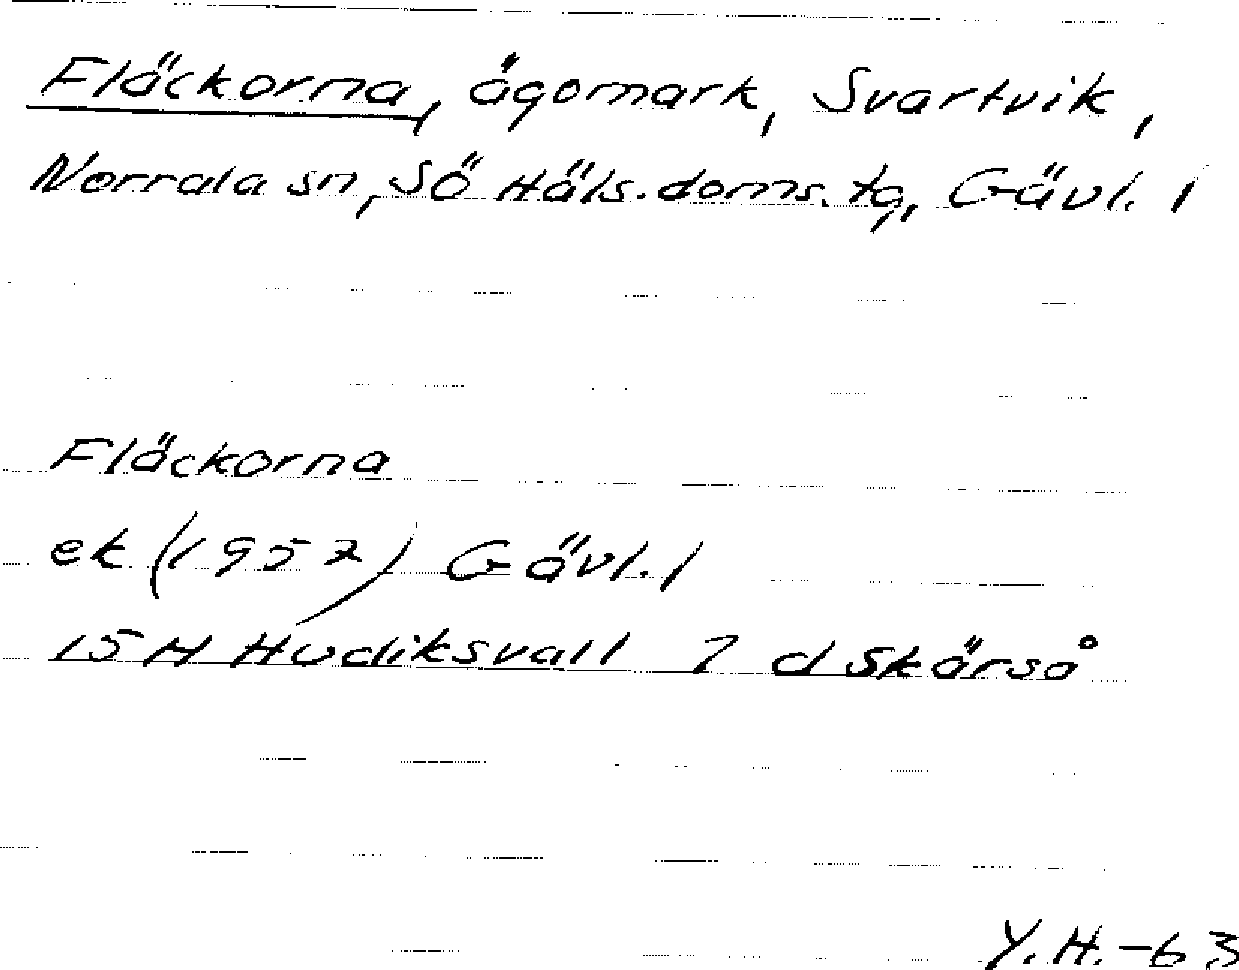 Fläckorna, ägomark, Svartvik,
Norrala sn, Sö Häls. doms. tg, Gävl. l
Fläckorna
ek (1957) Gävl. l
15 H Hudiksvall 7 d Skärså
Y.H. -63